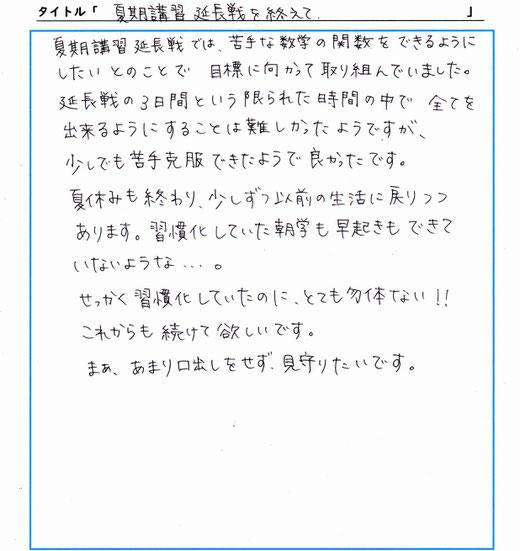 タイトル「 夏期講習 延長戦を終えて. 」
夏期講習延長戦では、苦手な数学の関数をできるように
したいとのことで 目標に向かって取り組んでいました。
延長戦の3日間という限られた時間の中で 全てを
出来るようにすることは難しかったようですが、
少しでも苦手克服できたようで良かったです。
夏休みも終わり、少しずつ以前の生活に戻りつつ
あります。習慣化していた朝学も早起きもできて
いないような...。
せっかく習慣化していたのに、とても勿体ない!!
これからも続けて欲しいです。
まぁ、あまり口出しをせず、見守りたいです。